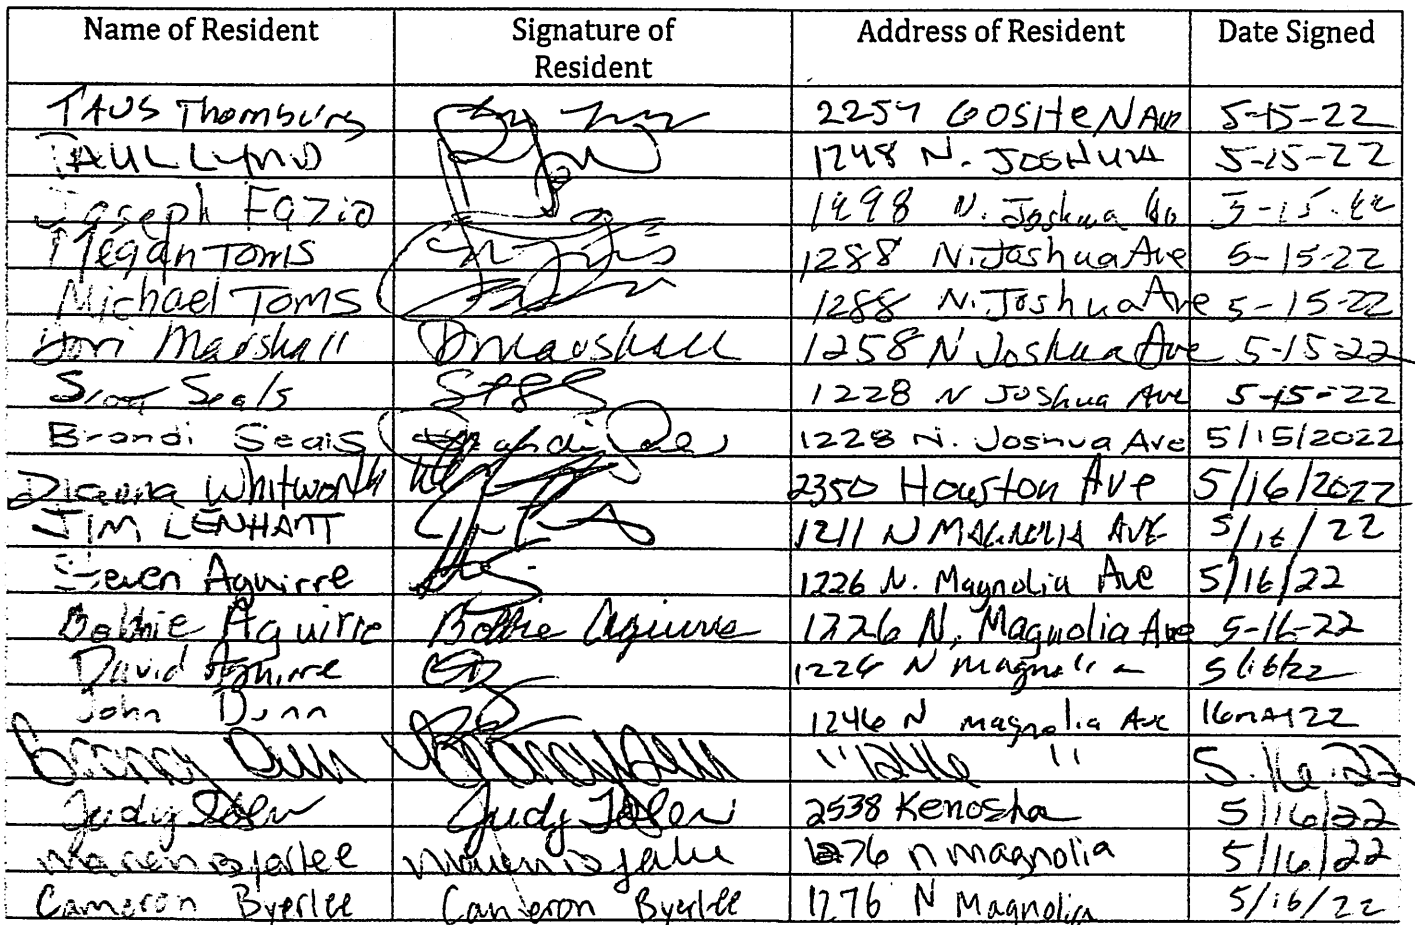 Name of Resident Signature of Resident Address of Resident Date Signed
Thornburg 2257 Ave 5-15-22
PAUL LYND 1248 N. JOSHUA 5-15-22
Joseph Fazio 1298 N. Joshua 5-15-22
Megan Toms 1288 N. Joshua Ave 5-15-22
Michael Toms 1288 N. Joshua Ave 5-15-22
Marshall DMarshall 1258 N Joshua Ave 5-15-22
Seals 1228 N Joshua Ave 5-15-22
Brandi Seals Brandi Seals 1228 N. Joshua Ave 5/15/2022
Dianna Whitworth 2350 Houston Ave 5/16/2022
JIM LENHART 1211 N MAGNOLIA AVE 5/16/22
Steven Aguirre 1226 N. Magnolia Ave 5/16/22
Bobbie Aguirre Bobbie Aguirre 1226 N. Magnolia Ave 5-16-22
David Aguirre 1226 N Magnolia 5/16/22
John Dunn 1246 N Magnolia Ave 16MAY22
Dunn "1246 " 5.16.22
Judy Judy 2538 Kenosha 5/16/22
Byerlee 1276 N Magnolia 5/16/22
Cameron Byerlee Cameron Byerlee 1276 N Magnolia 5/16/22